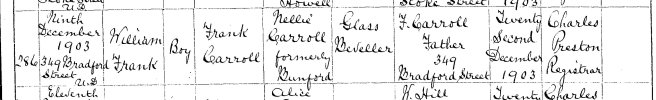 Howell
U.D. Stoke Street 1903
Ninth Nellie Glass F. Carroll Twenty Charles
December William Frank Carroll Beveller Father Second Preston
1903 Boy Carroll formerly 349 December Registrar
286 349 Bradford Frank Bunford Bradford Street 1903
Street
U.D.
Eleventh Alice W. Hill Twenty Charles